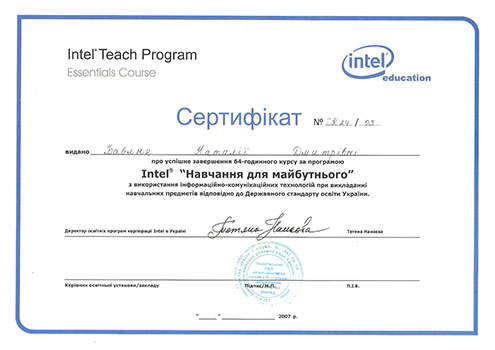 Intel® Teach Program
Essentials Course
intel®
education
Сертифікат № СК24 / 03
видано Баблюк Наталії Дмитрівні
про успішне завершення 64-годинного курсу за програмою
Intel® “Навчання для майбутнього”
з використання інформаційно-комунікаційних технологій при викладанні
навчальних предметів відповідно до Державного стандарту освіти України.
Директор освітніх програм корпорації Intel в Україні Тетяна Нанаєва
Керівник освітньої установи/закладу Підпис/М.П. П.І.Б.
“____” ________ 2007 р.